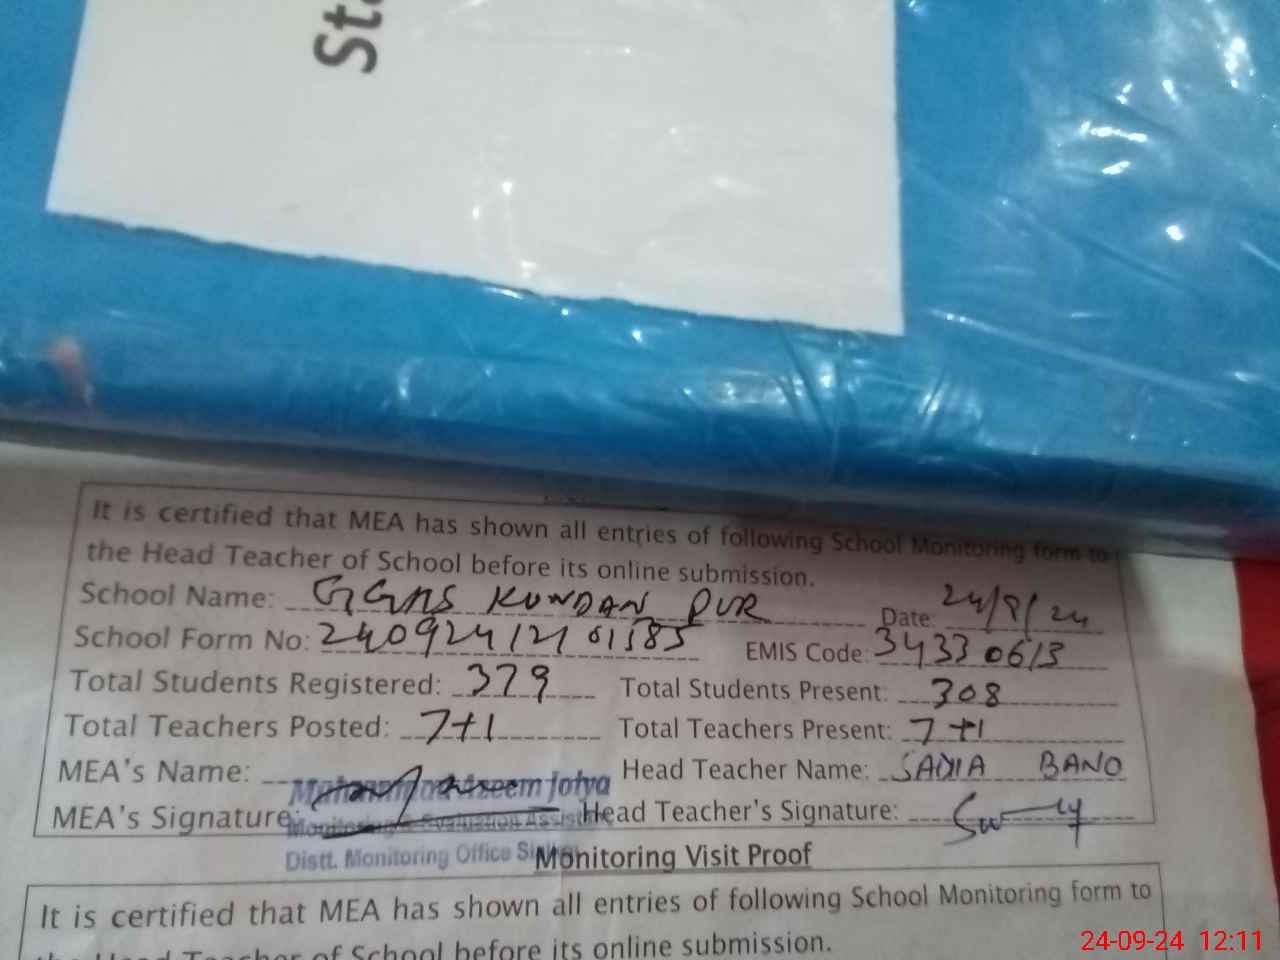 St
It is certified that MEA has shown all entries of following School Monitoring form to
the Head Teacher of School before its online submission.
School Name: GGMS KUNDAN PUR Date: 24/9/24
School Form No: EMIS Code: 34330613
Total Students Registered: 379 Total Students Present: 308
Total Teachers Posted: 7+1 Total Teachers Present: 7+1
MEA's Name: Muhammad Azeem Joiya Head Teacher Name: SADIA BANO
MEA's Signature: Monitoring & Evaluation Assistant Head Teacher's Signature:
Distt. Monitoring Office
Monitoring Visit Proof
It is certified that MEA has shown all entries of following School Monitoring form to
the Head Teacher of School before its online submission.
24-09-24 12:11